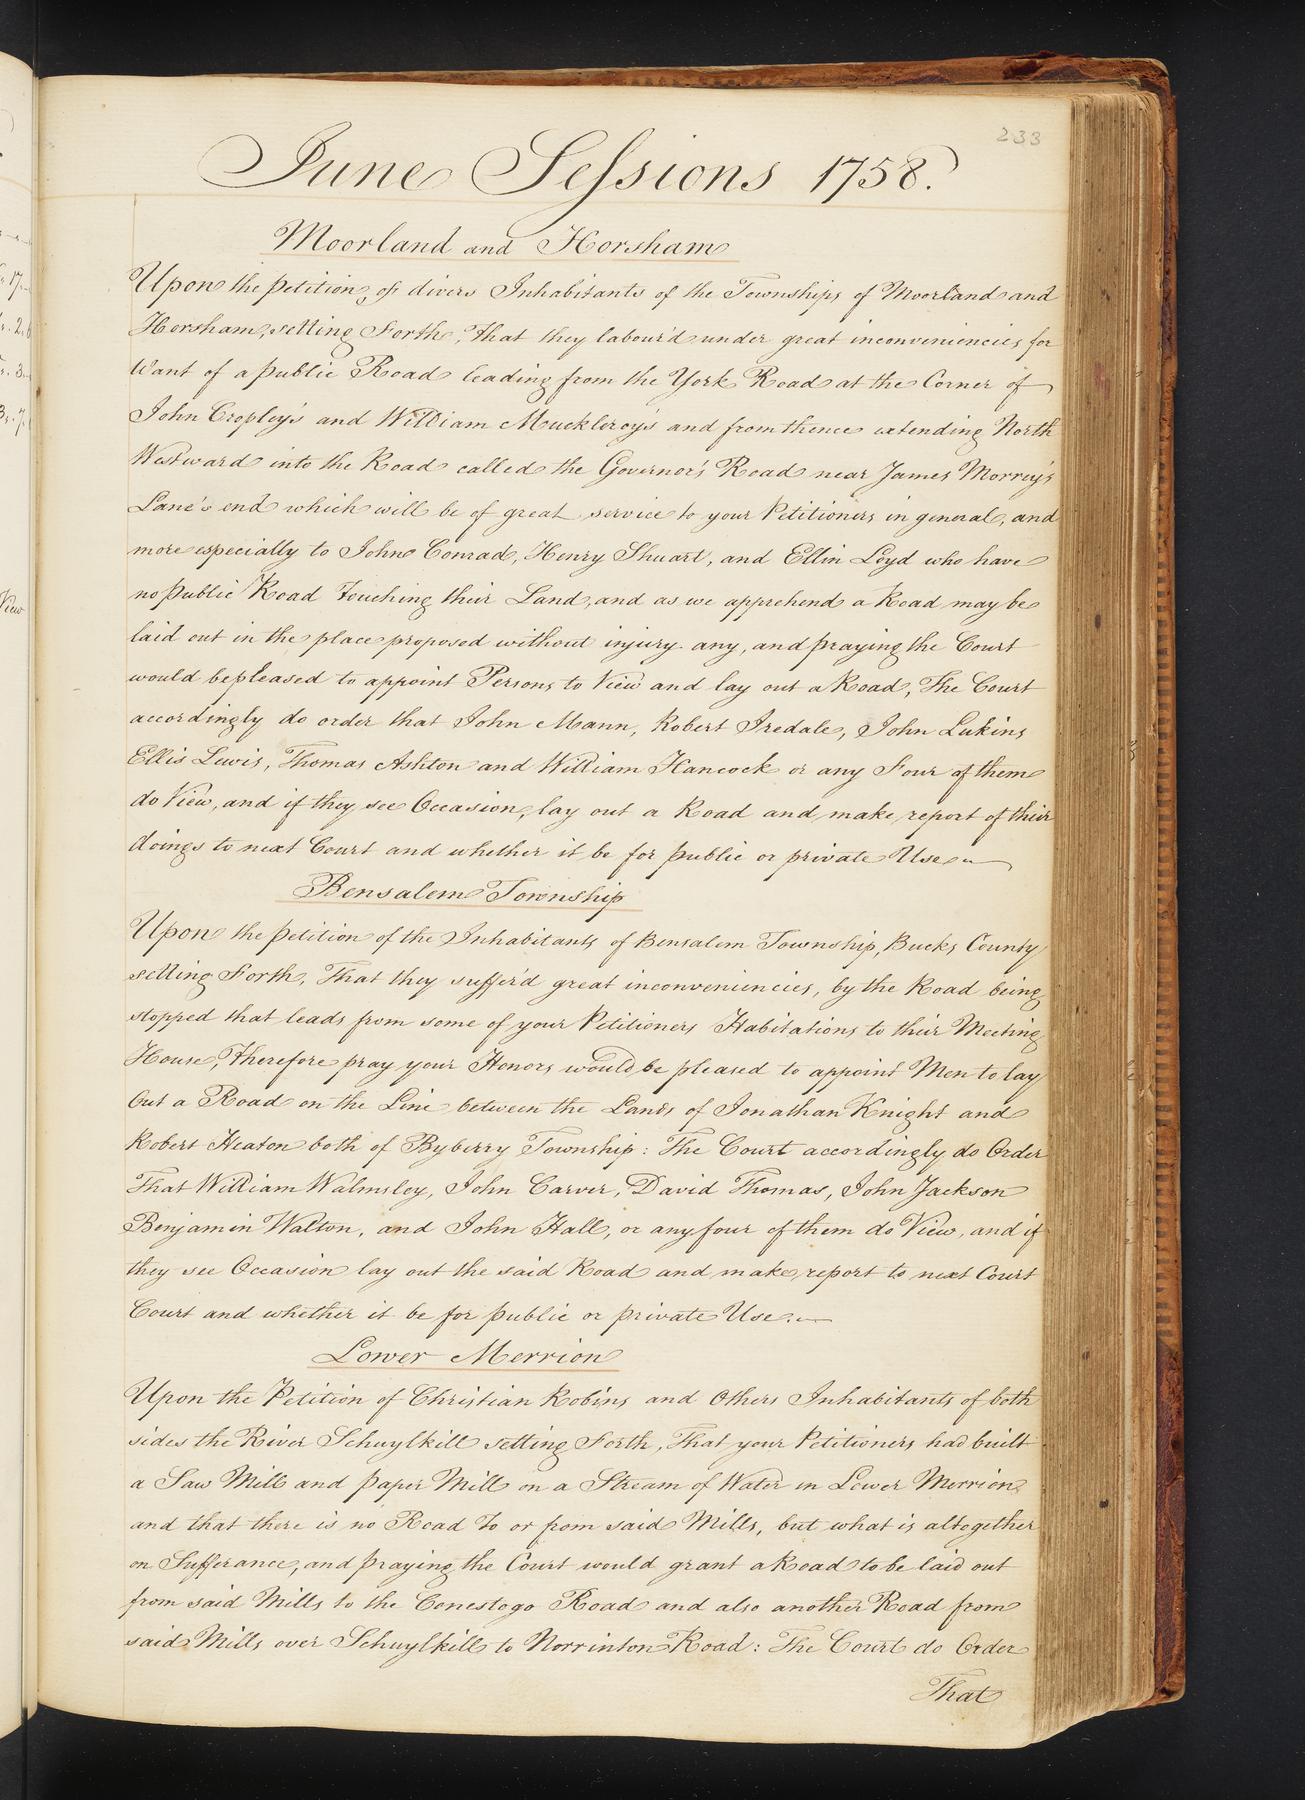 233
June Sessions 1758.
Moorland and Horsham
Upon the petition of divers Inhabitants of the Townships of Moorland and
Horsham, setting Forth, that they labour'd under great inconveniencies for
Want of a public Road leading from the York Road at the Corner of
John Cropley's and William Muckleroy's and from thence extending North
Westward into the Road called the Governor's Road near James Morrey's
Lane's end which will be of great service to your Petitioners in general, and
more especially to John Conrad, Henry Shuart, and Ellin Loyd who have
no public Road Touching their Land, and as we apprehend a Road may be
laid out in the place proposed without injury any, and praying the Court
would be pleased to appoint Persons to View and lay out a Road, The Court
accordingly do order that John Mann, Robert Iredale, John Lukins
Ellis Lewis, Thomas Ashton and William Hancock or any Four of them
do View, and if they see Occasion, lay out a Road and make report of their
doings to next Court and whether it be for public or private Use
Bensalem Township
Upon the petition of the Inhabitants of Bensalem Township, Bucks County
setting Forth, That they suffer'd great inconveniencies, by the Road being
stopped that leads from some of your Petitioners Habitations to their Meeting
House, therefore pray your Honors would be pleased to appoint Men to lay
Out a Road on the Line between the Lands of Jonathan Knight and
Robert Heaton both of Byberry Township: The Court accordingly do Order
That William Walmsley, John Carver, David Thomas, John Jackson
Benjamin Walton, and John Hall, or any four of them do View, and if
they see Occasion lay out the said Road and make report to next Court
Court and whether it be for public or private Use.
Lower Merrion
Upon the Petition of Christian Robins and Others Inhabitants of both
sides the River Schuylkill setting Forth, That your Petitioners had built
a Saw Mill and paper Mill on a Stream of Water in Lower Merrion
and that there is no Road To or from said Mills, but what is altogether
on Sufferance, and praying the Court would grant a Road to be laid out
from said Mills to the Conestogo Road and also another Road from
said Mills over Schuylkill to Norrinton Road: The Court do Order
That